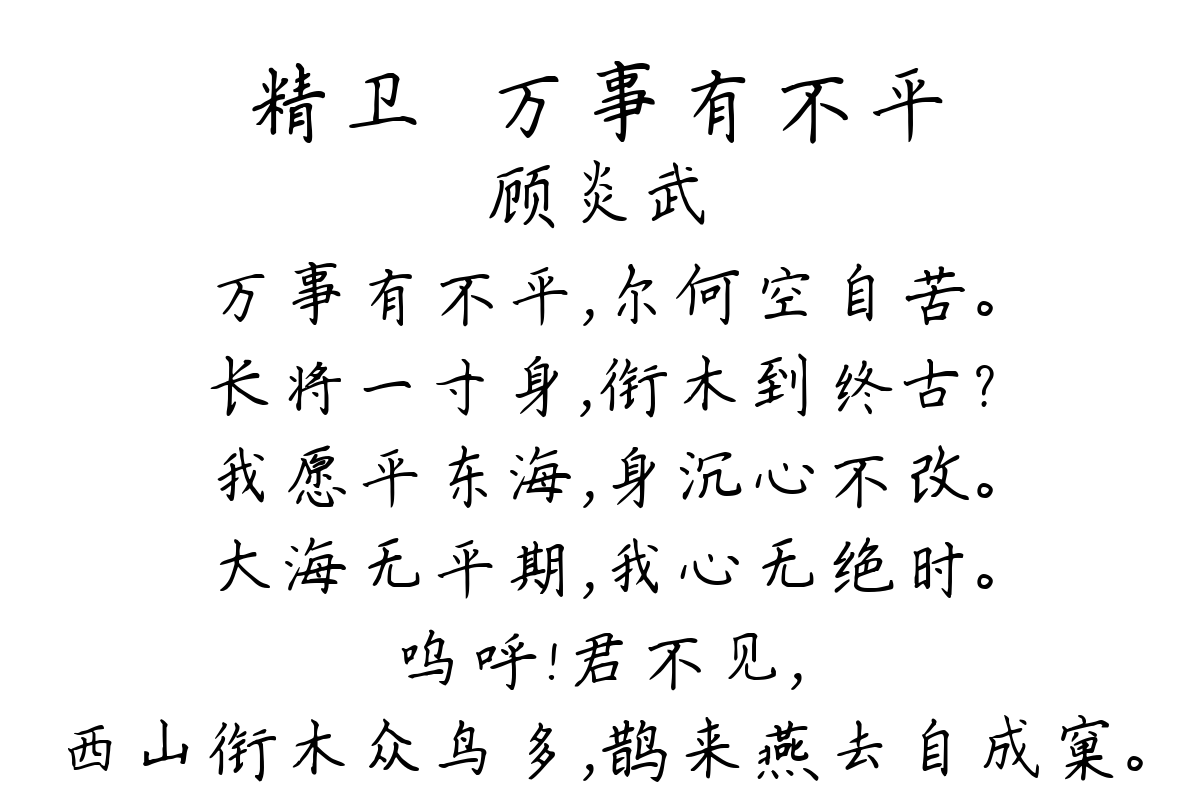 精卫 万事有不平
顾炎武
万事有不平,尔何空自苦。
长将一寸身,衔木到终古?
我愿平东海,身沉心不改。
大海无平期,我心无绝时。
呜呼!君不见,
西山衔木众鸟多,鹊来燕去自成窠。